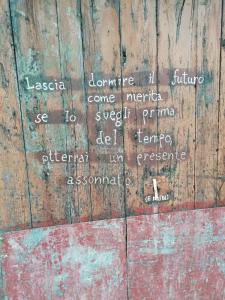 Lascia dormire il futuro
come merita
se lo svegli prima
del tempo,
otterrai un presente
assonnato